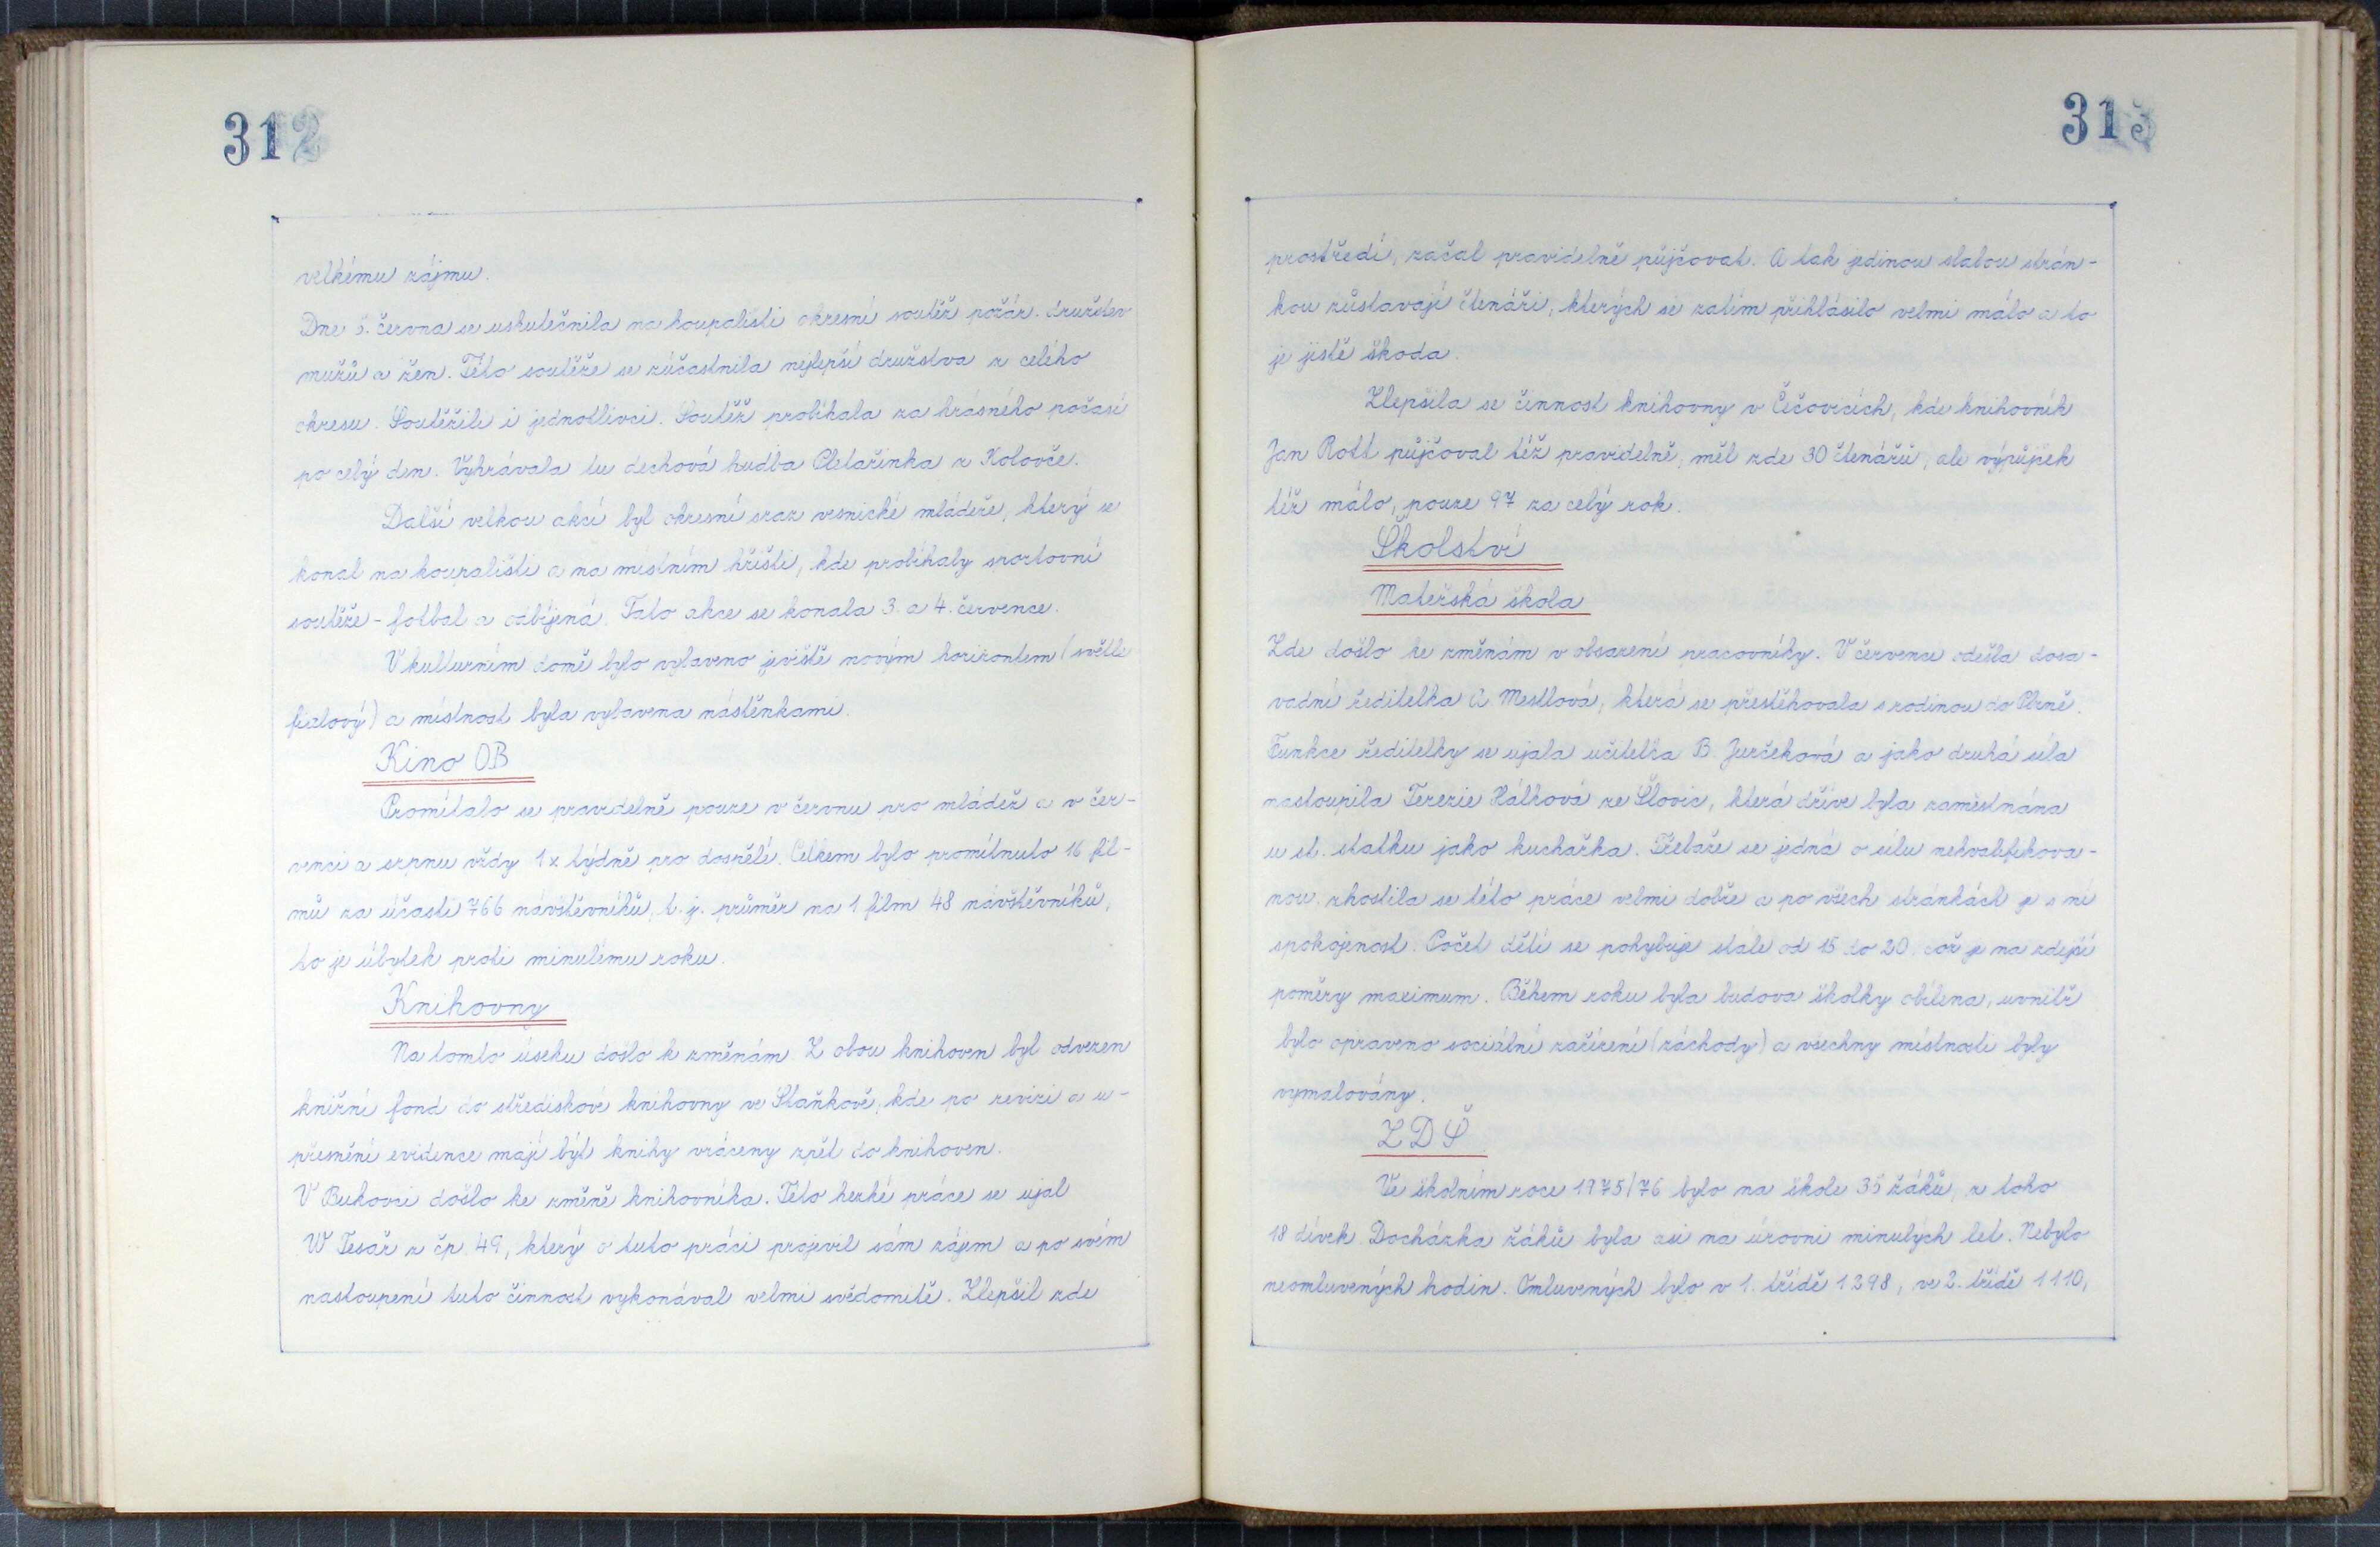 312
velkému zájmu.
Dne 5. června se uskutečnila na koupališti okresní soutěž požár. družstev
mužů a žen. Této soutěže se zúčastnila nejlepší družstva z celého
okresu. Soutěžili i jednotlivci. Soutěž probíhala za krásného počasí
po celý den. Vyhrávala tu dechová hudba Pletařinka z Koloveče.
Další velkou akcí byl okresní sraz vesnické mládeže, který se
konal na koupališti a na místním hřišti, kde probíhaly sportovní
soutěže - fotbal a odbíjená. Tato akce se konala 3. a 4. července.
V kulturním domě bylo vybaveno jeviště novým horizontem (světle
fialový) a místnost byla vybavena nástěnkami.
Kino OB
Promítalo se pravidelně pouze v červnu pro mládež a v čer-
venci a srpnu vždy 1x týdně pro dospělé. Celkem bylo promítnuto 16 fil-
mů za účasti 766 návštěvníků, t. j. průměr na 1 film 48 návštěvníků,
to je úbytek proti minulému roku.
Knihovny
Na tomto úseku došlo k změnám. Z obou knihoven byl odvezen
knižní fond do střediskové knihovny ve Staňkově, kde po revizi a u-
přesnění evidence mají být knihy vráceny zpět do knihoven.
V Bukovci došlo ke změně knihovníka. Této hezké práce se ujal
W Tesař z čp. 49, který o tuto práci projevil sám zájem a po svém
nastoupení tuto činnost vykonával velmi svědomitě. Zlepšil zde
313
prostředí, začal pravidelně půjčovat. A tak jedinou slabou strán-
kou zůstavají čtenáři, kterých se zatím přihlásilo velmi málo a to
je jistě škoda.
Zlepšila se činnost knihovny v Čečovicích, kde knihovník
Jan Rott půjčoval též pravidelně, měl zde 30 čtenářů, ale výpůjček
též málo, pouze 97 za celý rok.
Školství
Mateřská škola
Zde došlo ke změnám v obsazení pracovníky. V červenci odešla dosa-
vadní ředitelka A Mestlová, která se přestěhovala s rodinou do Plzně.
Funkce ředitelky se ujala učitelka B. Jurčeková a jako druhá síla
nastoupila Terezie Hálková ze Šlovic, která dříve byla zaměstnána
u st. statku jako kuchařka. Třebaže se jedná o sílu nekvalifikova-
nou, zhostila se této práce velmi dobře a po všech stránkách je s ní
spokojenost. Počet dětí se pohybuje stále od 15 do 20, což je na zdejší
poměry maximum. Během roku byla budova školky obílena, uvnitř
bylo opraveno sociální zařízení (záchody) a všechny místnosti byly
vymalovány.
ZDŠ
Ve školním roce 1975/76 bylo na škole 35 žáků, z toho
18 dívek. Docházka žáků byla asi na úrovni minulých let. Nebylo
neomluvených hodin. Omluvených bylo v 1. třídě 1298, ve 2. třídě 1110,